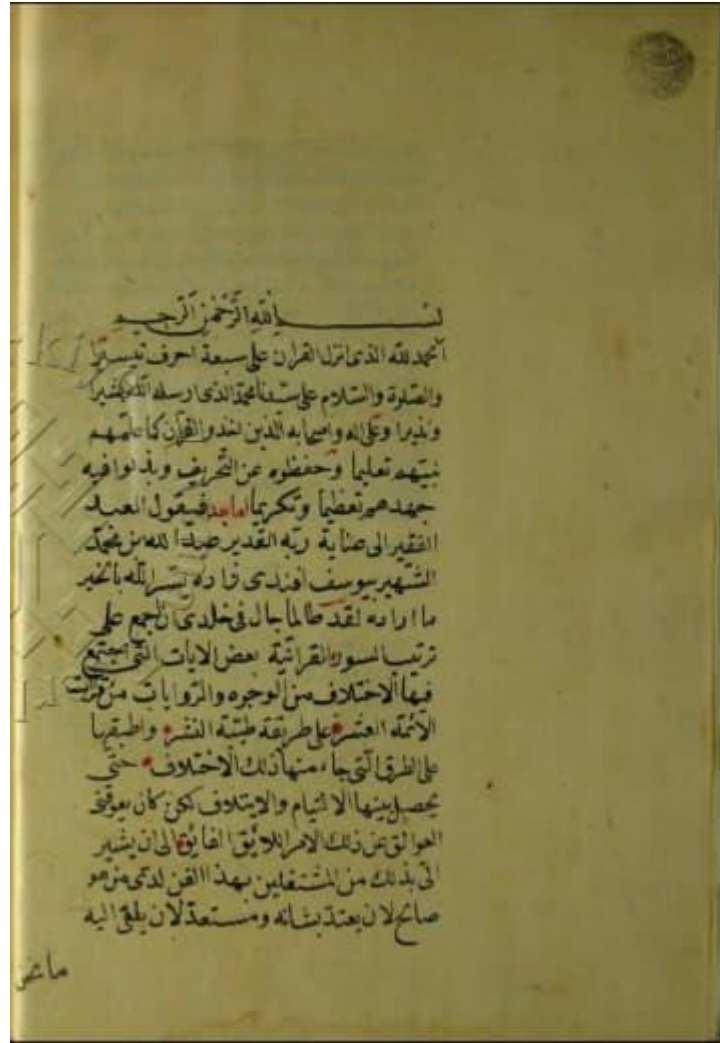 بسم الله الرحمن الرحيم
الحمد لله الذى انزل القران على سبعة احرف تيسيرا
والصلوة والسلام على سيدنا محمد الذى ارسله الله بشيرا
ونذيرا وعلى اله واصحابه الذين اخذوا القران كما علمهم
نبيهم تعليما وحفظوه عن التحريف وبذلوا فيه
جهدهم تعظيما وتكريما اما بعد فيقول العبد
الفقير الى عناية ربه القدير عبد الله بن محمد
الشهير بيوسف افندى زاده يسر الله بالخير
ما اراده لقد طالما جال فى خلدى ان اجمع على
ترتيب السور القرانية بعض الايات التى اجتمع
فيها الاختلاف من الوجوه والروايات من قرات
الائمة العشرة على طريقة طيبة النشر واطبقها
على الطرق التى جاء منها ذلك الاختلاف حتى
يحصل بينها الالتيام والايتلاف لكن كان يعوقنى
العوائق عن ذلك الامر اللائق الفايق الى ان يشير
الى بذلك من المشتغلين بهذا الفن لدى من هو
صالح لان يعتد بشانه ومستعد لان يلقى اليه